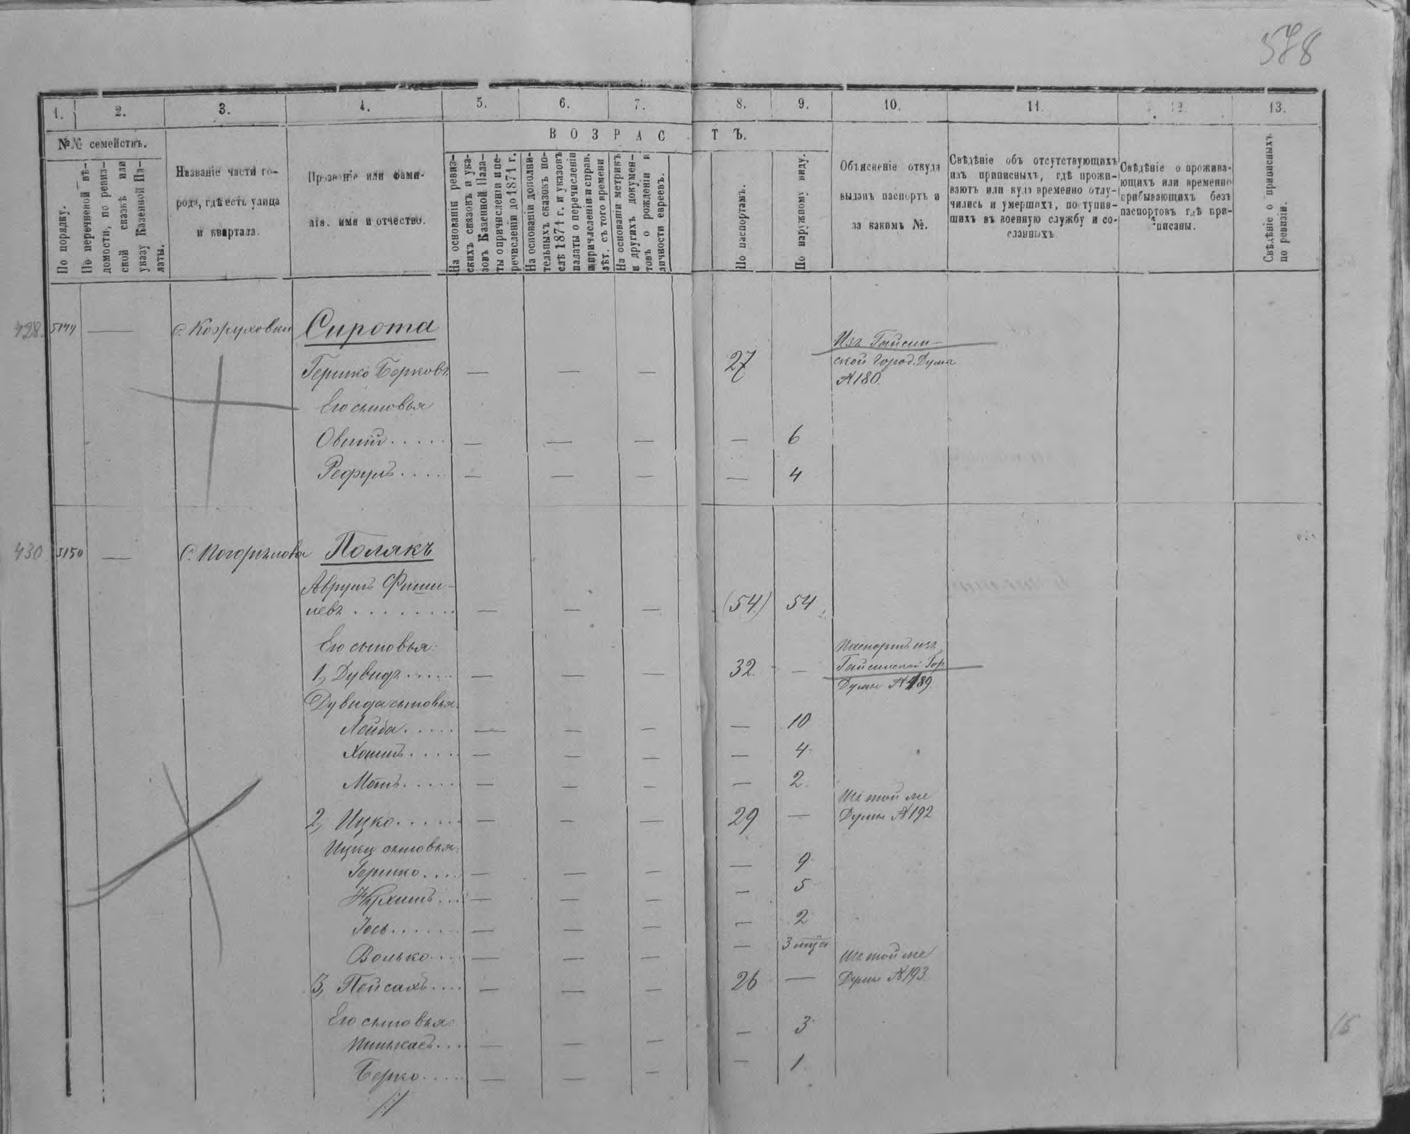 578
1. 2. 3. 4. 5. 6. 7. 8. 9. 10. 11. 12. 13.
№№ семействъ.
По порядку.
По перечневой вѣ-
домости, по ревиз-
ской сказкѣ или
указу Казенной Па-
латы.
Названіе части го-
рода, гдѣ есть улица
и квартала.
Прозваніе или фами-
лія, имя и отчество.
ВОЗРАСТЪ.
На основаніи ревиз-
скихъ сказокъ и ука-
зовъ Казенной Пала-
ты о причисленіи и пе-
речисленіи до 1874 г.
На основаніи дополни-
тельныхъ сказокъ по-
слѣ 1874 г. и указовъ
палаты о перечисленіи
причисленіи и исправ.
лѣт. съ того времени
На основаніи метрикъ
и другихъ докумен-
товъ о рожденіи и
личности евреевъ.
По паспортамъ.
По наружному виду.
Объясненіе откуда
выданъ паспортъ и
за какимъ №.
Свѣдѣніе объ отсутствующихъ
изъ приписныхъ, гдѣ прожи-
ваютъ или куда временно отлу-
чились и умершихъ, поступив-
шихъ въ военную службу и со-
сланныхъ.
Свѣдѣніе о прожива-
ющихъ или временно
прибывающихъ безъ
паспортовъ гдѣ при-
писаны.
Свѣдѣніе о приписныхъ
по ревизіи.
428. 5149 — Сирота
Изъ Гайсин-
Гершко Берковъ — — — 27 ской Город. Думы
№ 180.
Его сыновья
Овшій..... — — — — 6
Рефулъ.... — — — — 4
430 5150 — Полякъ
Аврумъ Фиши-
левъ........ — — — (54) 54
Его сыновья: Паспортъ изъ
1, Дувидъ..... — — — 32 — Гайсинской Гор.
Дувида сыновья: Думы № 189
Лейба..... — — — — 10
— — — — 4
..... — — — — 2
Из той же
2, Ицко...... — — — 29 — Думы № 192
Ицки сыновья:
Гершко.... — — — — 9
... — — — — 5
Іось...... — — — — 2
Волько.... — — — — 3 мѣся
Из той же
3, Пейсахъ.... — — — 26 — Думы № 193.
Его сыновья
Пинькасъ... — — — — 3
Берко..... — — — — 1
15